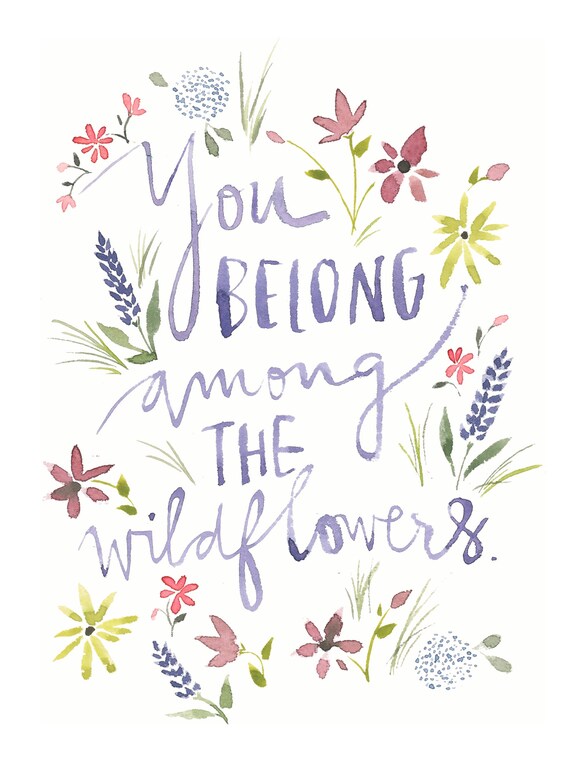 You
BELONG
among
THE
wildflowers.